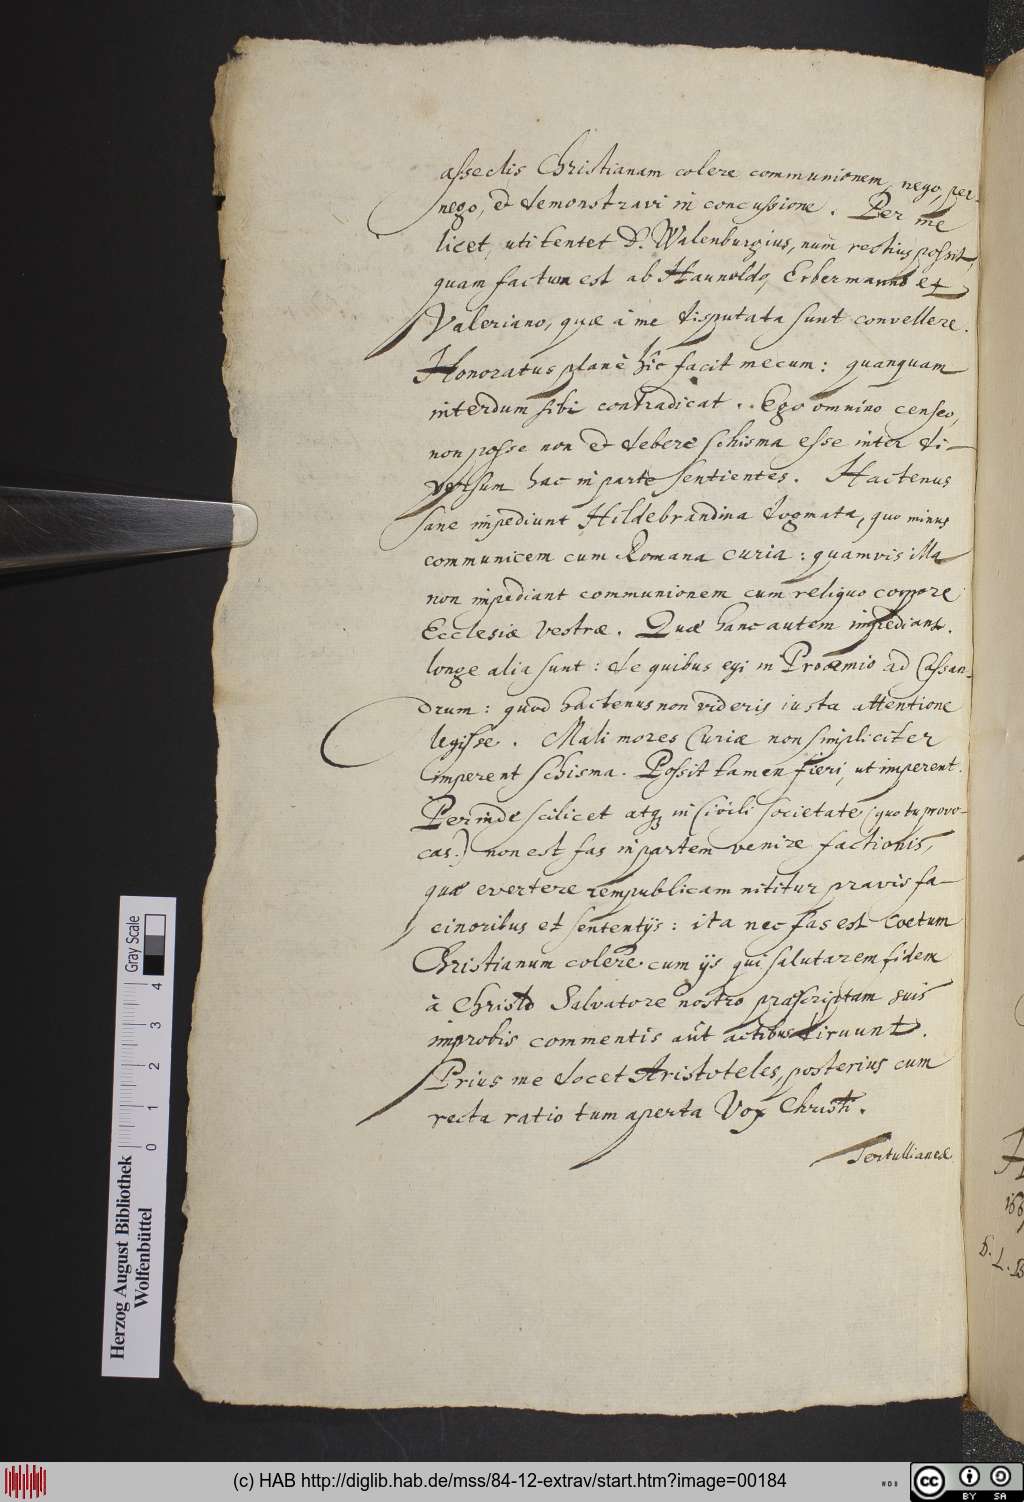 asseclis Christianam colere communionem, nego, per-
nego, et demonstravi in concussione. Per me
licet, uti tentet D. Walenburgius, num rectius possit,
quam factum est ab Haunoldo, Erbermanno et
Valeriano, quæ à me disputata sunt convellere.
Honoratus planè hîc facit mecum: quanquam
interdum sibi contradicat. Ego omnino censeo,
non posse non et debere schisma esse inter di-
versum hac in parte sentientes. Hactenus
sane impediunt Hildebrandina dogmata, quo minus
communicem cum Romana curia: quamvis illa
non impediant communionem cum reliquo corpore
Ecclesiæ vestræ. Quæ hanc autem impediant,
longe alia sunt: de quibus egi in Proœmio ad Cassan-
drum: quod hactenus non videris iusta attentione
legisse. Mali mores Curiæ non simpliciter
imperent schisma. Possit tamen fieri, ut imperent.
Perinde scilicet atq; in Civili societate (quo tu provo-
cas.) non est fas in partem venire factionis,
quæ evertere rempublicam nititur pravis fa-
cinoribus et sententijs: ita nec fas est Coetum
Christianum colere cum ijs qui salutarem fidem
à Christo Salvatore nostro præscriptam suis
improbis commentis aut actibus diruunt.
Prius me docet Aristoteles, posterius cum
recta ratio tum aperta Vox Christi.
Tertullianeæ
Gray Scale
0 1 2 3 4
Herzog August Bibliothek
Wolfenbüttel
(c) HAB http://diglib.hab.de/mss/84-12-extrav/start.htm?image=00184
cc BY SA